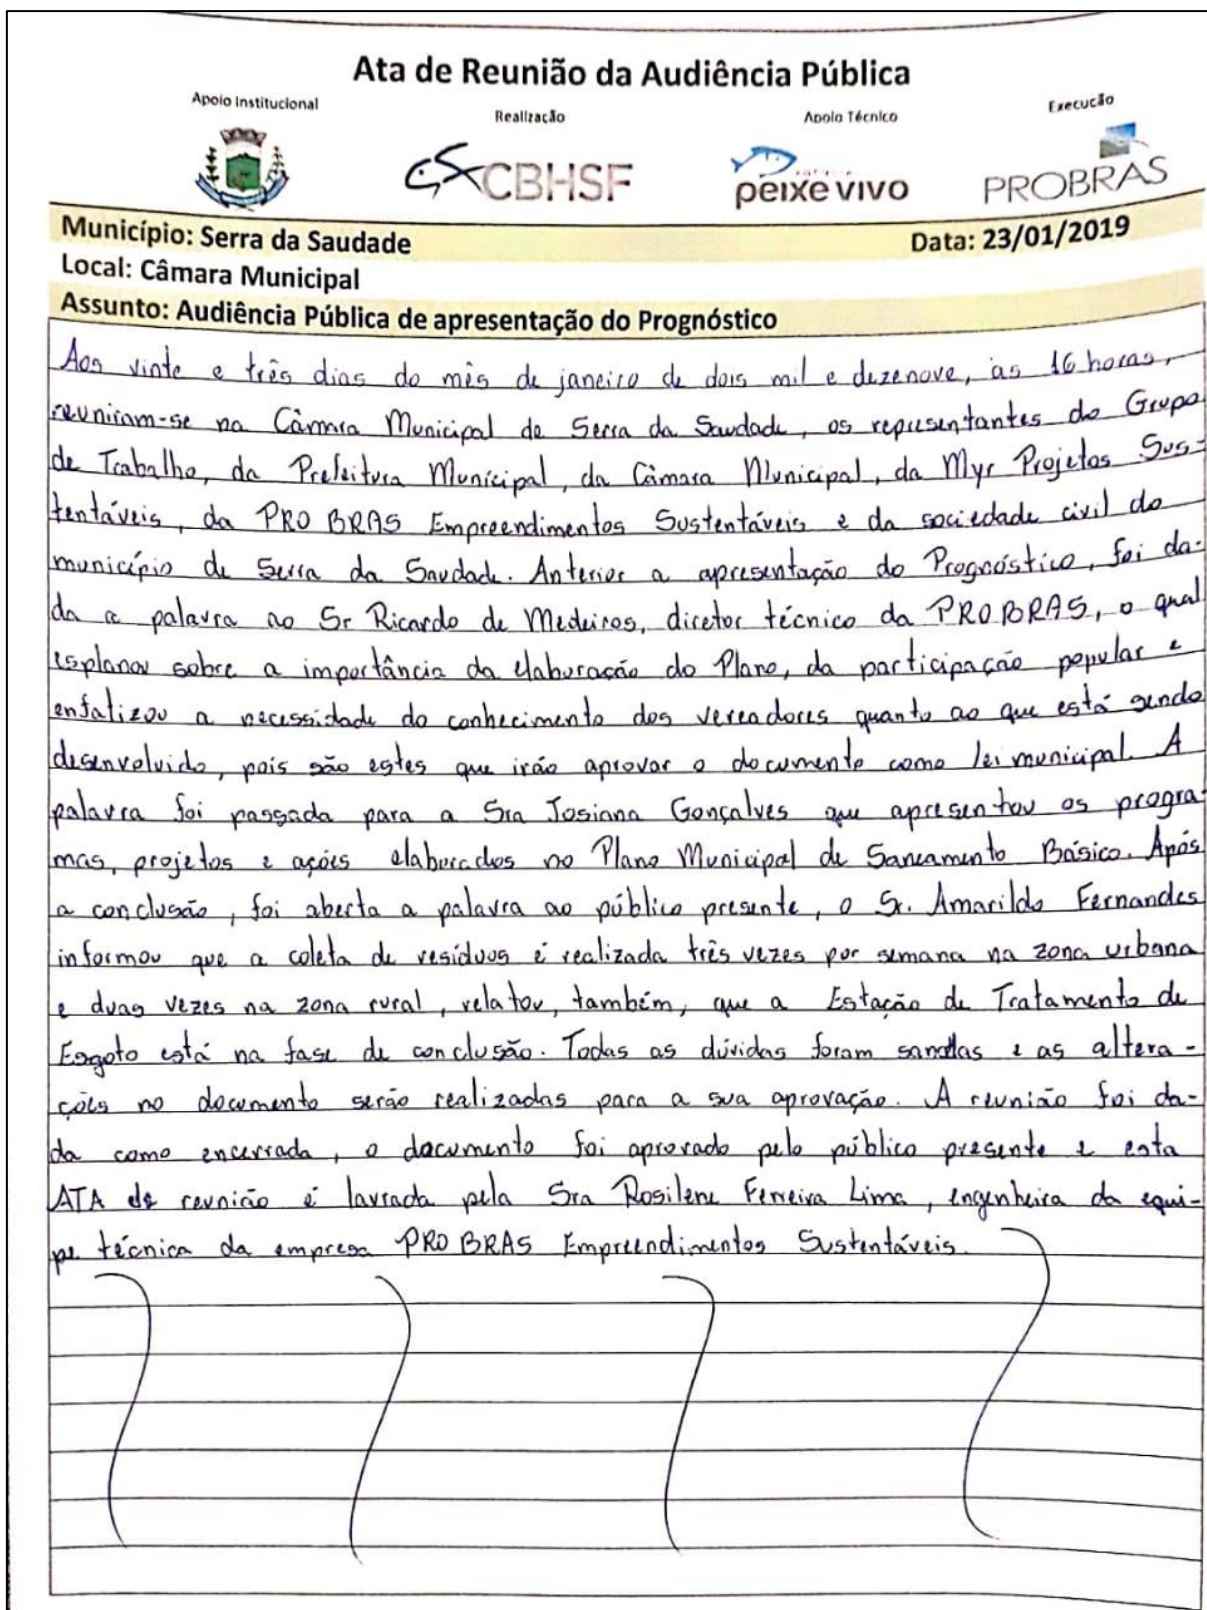 Ata de Reunião da Audiência Pública
Apoio Institucional
Realização
Apoio Técnico
Execução
CBHSF
peixe vivo
PROBRAS
Município: Serra da Saudade
Data: 23/01/2019
Local: Câmara Municipal
Assunto: Audiência Pública de apresentação do Prognóstico
Aos vinte e três dias do mês de janeiro de dois mil e dezenove, às 16 horas,
reuniram-se na Câmara Municipal de Serra da Saudade, os representantes do Grupo
de Trabalho, da Prefeitura Municipal, da Câmara Municipal, da Myr Projetos Sus-
tentáveis, da PRO BRAS Empreendimentos Sustentáveis e da sociedade civil do
município de Serra da Saudade. Anterior a apresentação do Prognóstico, foi da-
da a palavra ao Sr Ricardo de Medeiros, diretor técnico da PROBRAS, o qual
esplanou sobre a importância da elaboração do Plano, da participação popular e
enfatizou a necessidade do conhecimento dos vereadores quanto ao que está sendo
desenvolvido, pois são estes que irão aprovar o documento como lei municipal. A
palavra foi passada para a Sra Josiana Gonçalves que apresentou os progra-
mas, projetos e ações elaborados no Plano Municipal de Saneamento Básico. Após
a conclusão, foi aberta a palavra ao público presente, o Sr. Amarildo Fernandes
informou que a coleta de resíduos é realizada três vezes por semana na zona urbana
e duas vezes na zona rural, relatou, também, que a Estação de Tratamento de
Esgoto está na fase de conclusão. Todas as dúvidas foram sanadas e as altera-
ções no documento serão realizadas para a sua aprovação. A reunião foi da-
da como encerrada, o documento foi aprovado pelo público presente e esta
ATA de reunião é lavrada pela Sra Rosilene Ferreira Lima, engenheira da equi-
pe técnica da empresa PRO BRAS Empreendimentos Sustentáveis.